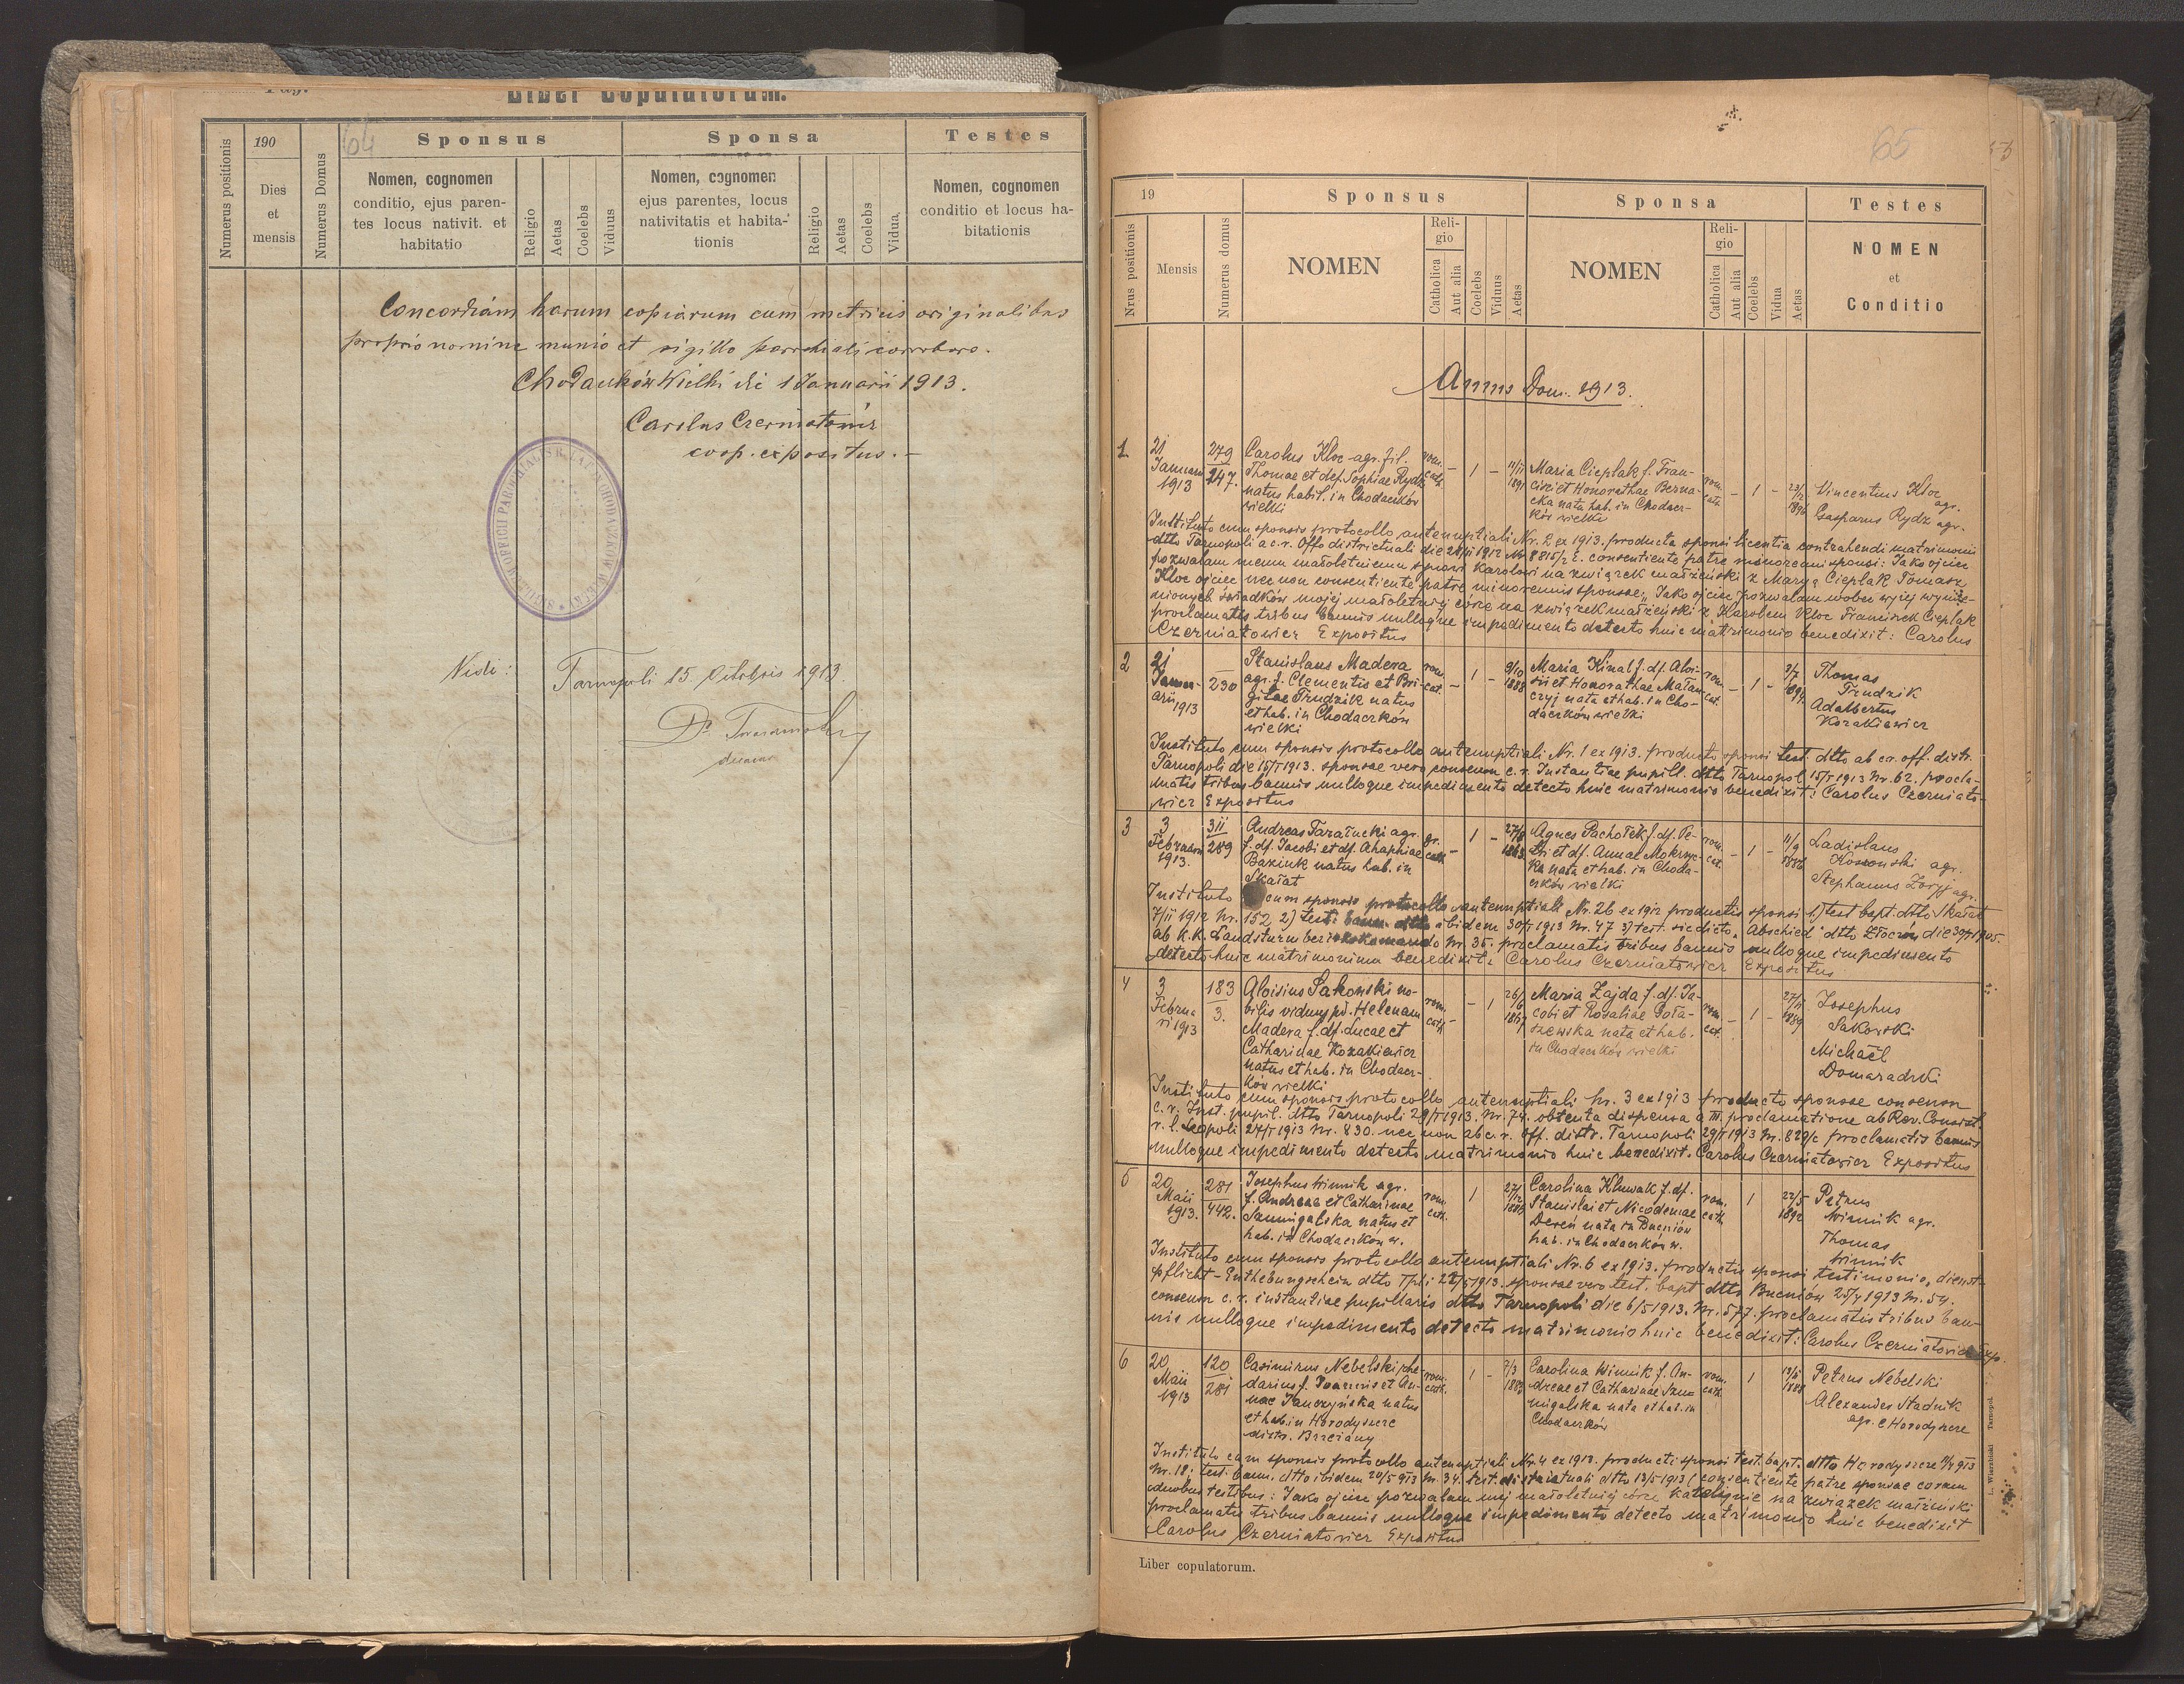 Pag.
Liber Copulatorum.
64
Numerus positionis
190
Dies
et
mensis
Numerus Domus
Sponsus
Nomen, cognomen
conditio, ejus paren-
tes locus nativit. et
habitatio
Religio
Aetas
Coelebs
Viduus
Sponsa
Nomen, cognomen
ejus parentes, locus
nativitatis et habita-
tionis
Religio
Aetas
Coelebs
Vidua
Testes
Nomen, cognomen
conditio et locus ha-
bitationis
Concordiam harum copiarum cum metricis originalibus
proprio nomine munio et sigillo parochiali corroboro.
Chodaczków Wielki die 1 Januarii 1913.
Carolus Czerniatowicz
coop. expositus.
Vidi:
Tarnopoli 15 Octobris 1913.
decanus
65
19
Nrus positionis
Mensis
Numerus domus
Sponsus
NOMEN
Reli-
gio
Catholica
Aut alia
Coelebs
Viduus
Aetas
Sponsa
NOMEN
Reli-
gio
Catholica
Aut alia
Coelebs
Vidua
Aetas
Testes
NOMEN
et
Conditio
Annus Dom. 1913.
1
21
Januarii
1913
279
247.
Carolus Kloc agr. fil.
Thomae et def. Sophiae Rydz
natus habit. in Chodaczków
wielki
rom.
cath.
- 1 -
11/11
1891
Maria Cieplak f. Fran-
cisci et Honorathae Berna-
cka nata hab. in Chodacz-
ków wielki
rom.
cath.
- 1 -
23/2
1896
Vincentius Kloc
agr.
Gasparus Rydz agr.
Instituto cum sponsis protocollo antenuptiali Nr. 2 ex 1913. producta sponsi licentia contrahendi matrimonii
dtto Tarnopoli a c. r. Offo districtuali die 28/11 1912 Nr 8815/2 E. consentiente patre minorenni sponsi: Jako ojciec
pozwalam memu małoletniemu synowi Karolowi na związek małżeński z Maryą Cieplak Tomasz
Kloc ojciec nec non consentiente patre minorennis sponsae „Jako ojciec pozwalam wobec wyżej wymie-
nionych świadków mojej małoletniej córce na związek małżeński z Karolem Kloc Franciszek Cieplak
proclamatis tribus bannis nulloque impedimento detecto huic matrimonio benedixit: Carolus
Czerniatowicz Expositus
2
21
Janu-
arii
1913
230
Stanislaus Madera
agr. f. Clementis et Bri-
gitae Trudzik natus
et hab. in Chodaczków
wielki
rom.
cat.
- 1 -
9/10
1888
Maria Kinal f. df. Aloi-
sii et Honorathae Małan-
czyj nata et hab. in Cho-
daczków wielki
rom.
cat.
- 1 -
2/7
1894
Thomas
Trudzik
Adalbertus
Kozakiewicz
Instituto cum sponsis protocollo antenuptiali Nr. 1 ex 1913. producto sponsi test. dtto ab c.r. off. distr.
Tarnopoli die 15/I 1913. sponsae vero consensu c. r. Instantiae pupill. dtto Tarnopol 15/I 1913 Nr. 62. procla-
matis tribus bannis nulloque impedimento detecto huic matrimonio benedixit: Carolus Czerniato-
wicz Expositus
3
3
Februarii
1913.
311
289
Andreas Tarałucki agr.
f. df. Jacobi et df. Ahaphiae
Baziuk natus hab. in
Skałat
gr.
cath
- 1 -
1863
Agnes Pachołek f. df. Pe-
tri et df. Annae Mokrzyc-
ka nata et hab. in Choda-
czków wielki
rom.
cat.
- 1 -
11/9
1886
Ladislaus
Kossowski agr.
Stephanus Zoryj agr.
Instituto cum sponsis protocollo antenuptiali Nr. 26 ex 1912 productis sponsi 1.) test bapt. dtto Skałat
7/11 1912 Nr. 152, 2) testi bann. dtto ibidem 30/I 1913 Nr. 47 3) test. sic dicto „Abschied" dtto Złoczów die 30/I 1905.
ab k.k. Landsturmbezirkskomando Nr 35. proclamatis tribus bannis nulloque impedimento
detecto huic matrimonium benedixit: Carolus Czerniatowicz Expositus
4
3
Februa
rii 1913
183
3.
Aloisius Sakowski no-
bilis viduus p. Helenam
Madera f. df. Lucae et
Catharinae Kozakiewicz
natus et hab. in Chodacz-
ków wielki
rom.
cath
- - 1
26/6
1867
Maria Zajda f. df. Ja-
cobi et Rosaliae Poła-
szewska nata et hab.
in Chodaczków wielki
rom.
cat.
- 1 -
27/11
1889
Josephus
Sakowski
Michaël
Domaradzki
Instituto cum sponsis protocollo antenuptiali Nr. 3 ex 1913 producto sponsae consensu
c. r. Inst. pupil. dtto Tarnopoli 29/I 1913. Nr. 74. obtenta dispensa a III. proclamatione ab Rev. Consist.
r. l. Leopoli 27/I 1913 Nr. 830. nec non ab c. r. off. distr. Tarnopoli 29/I 1913 Nr. 829/c proclamatis bannis
nulloque impedimento detecto matrimonio huic benedixit. Carolus Czerniatowicz Expositus
5
20
Maii
1913.
281
442.
Josephus Winnik agr.
f. Andreae et Catharinae
Szumigalska natus et
hab. in Chodaczków w.
rom.
cath.
1
27/12
1885
Carolina Kluwak f. df.
Stanislai et Nicodemae
Dereń nata in Bucniów
hab. in Chodaczków w.
rom.
cath
1
22/5
1892
Petrus
Winnik agr.
Thomas
Winnik
Instituto cum sponsis protocollo antenuptiali Nr. 6 ex 1913. productis sponsi testimonio „dienst-
pflicht-Enthebungschein dtto Tpli 22/5 1913. sponsae vero test. bapt dtto Bucniów 25/4 1913 Nr. 54.
consensu c. r. instantiae pupillaris dtto Tarnopoli die 6/5 1913. Nr. 577. proclamatis tribus ban-
nis nulloque impedimento detecto matrimonio huic benedixit: Carolus Czerniatowicz Exp.
6
20
Maii
1913
120
281
Casimirus Nebelski rhe-
darius f. Joannis et An-
nae Janczyńska natus
et hab. in Horodyszcze
distr. Brzeżany
rom.
cath.
1 -
7/3
1889
Carolina Winnik f. An-
dreae et Catharinae Szu-
migalska nata et hab. in
Chodaczków
rom.
cath
1
Petrus Nebelski
Alexander Stadnik
agr. e Horodyszcze
Instituto cum sponsis protocollo antenuptiali Nr. 4 ex 1913. producti sponsi test. bapt. dtto Horodyszcze 913
Nr. 18; test. bann. dtto ibidem 20/5 913 Nr. 34. test. districtuali dtto 13/5 1913 (consentiente patre sponsae coram
duobus testibus: Jako ojciec pozwalam mej małoletniej córce Katolignie na związek małżeński
proclamatis tribus bannis nulloque impedimento detecto matrimonio huic benedixit
Carolus Czerniatowicz Expositus
Liber copulatorum.
L. Wierzbicki Tarnopol